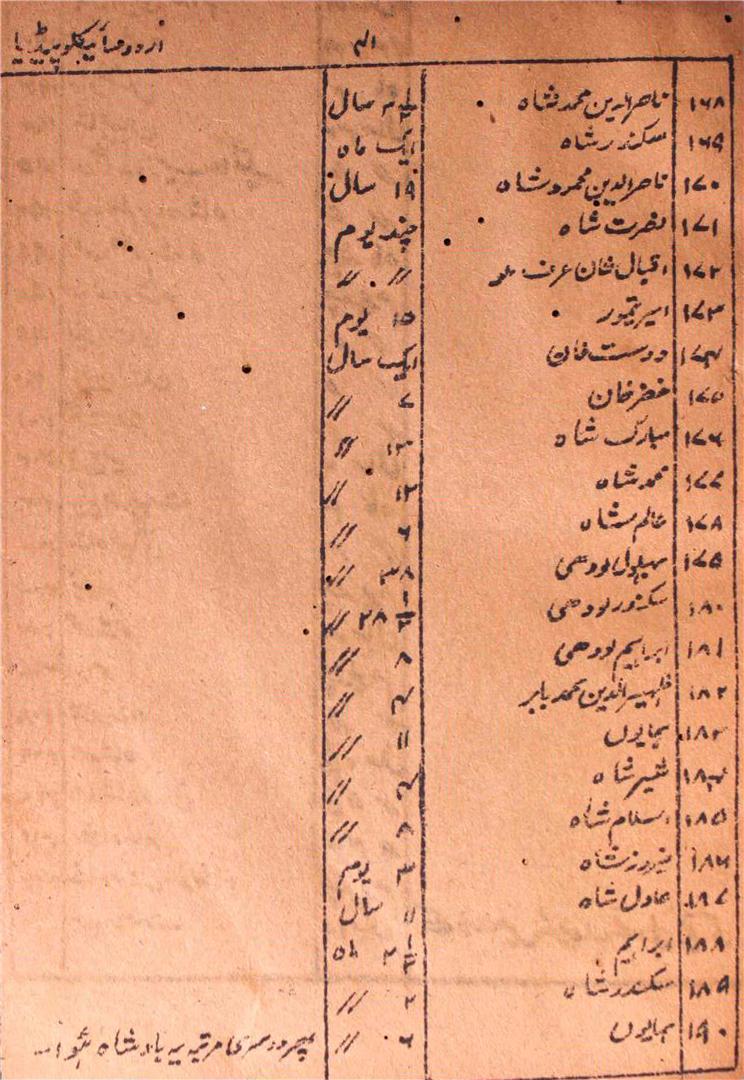 اردو سائیکلوپیڈیا ۴۱
۱۶۸ ناصرالدین محمد شاہ سال
۱۶۹ سکندر شاہ ایک ماہ
۱۷۰ ناصرالدین محمود شاہ ۱۹ سال
۱۷۱ نصرت شاہ چند یوم
۱۷۲ اقبال خان عرف ملو 〃 〃
۱۷۳ امیر تیمور ۱۵ یوم
۱۷۴ دوست خان ایک سال
۱۷۵ خضر خان ۷ 〃
۱۷۶ مبارک شاہ ۱۳ 〃
۱۷۷ محمد شاہ ۱۲ 〃
۱۷۸ عالم شاہ ۶ 〃
۱۷۹ بہلول لودھی ۳۸ 〃
۱۸۰ سکندر لودھی ۲۸ ۱/۲ 〃
۱۸۱ ابراہیم لودھی ۸ 〃
۱۸۲ ظہیرالدین محمد بابر ۴ 〃
۱۸۳ ہمایوں ۱۱ 〃
۱۸۴ شیر شاہ ۴ 〃
۱۸۵ اسلام شاہ ۸ 〃
۱۸۶ فیروز شاہ ۳ یوم
۱۸۷ عادل شاہ ۱۱ سال
۱۸۸ ابراہیم ۲ ۱/۲ ماہ
۱۸۹ سکندر شاہ ۲ 〃
۱۹۰ ہمایوں ۶ 〃 پھر دوسری مرتبہ یہ بادشاہ ہوا۔